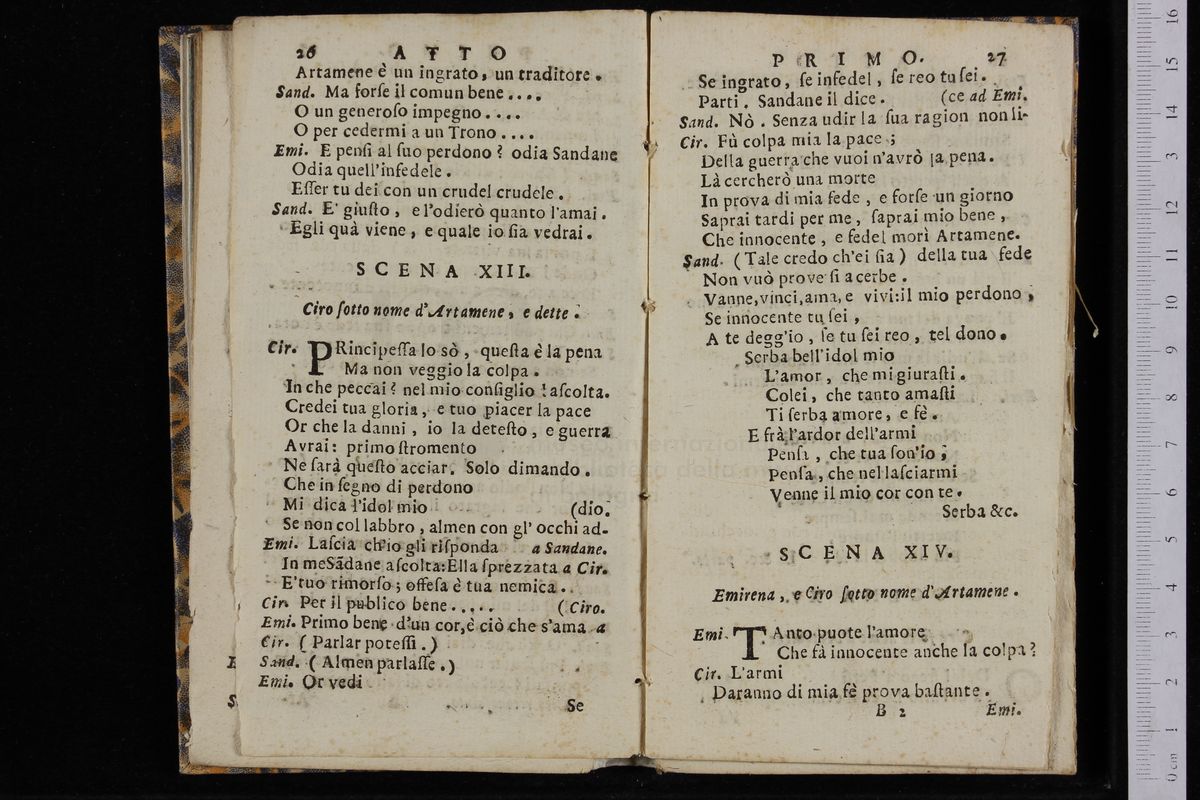 26 ATTO
Artamene è un ingrato, un traditore.
Sand. Ma forſe il comun bene....
O un generoſo impegno....
O per cedermi a un Trono....
Emi. E penſi al ſuo perdono? odia Sandane
Odia quell'infedele.
Eſſer tu dei con un crudel crudele.
Sand. E' giuſto, e l'odierò quanto l'amai.
Egli quà viene, e quale io ſia vedrai.
SCENA XIII.
Ciro ſotto nome d'Artamene, e dette.
Cir. PRincipeſſa lo sò, queſta è la pena
Ma non veggio la colpa.
In che peccai? nel mio conſiglio! aſcolta.
Credei tua gloria, e tuo piacer la pace
Or che la danni, io la deteſto, e guerra
Avrai: primo ſtromento
Ne ſarà queſto acciar. Solo dimando.
Che in ſegno di perdono
Mi dica l'idol mio (dio.
Se non col labbro, almen con gl' occhi ad-
Emi. Laſcia ch'io gli riſponda a Sandane.
In meSãdane aſcolta:Ella ſprezzata a Cir.
E'tuo rimorſo; offeſa è tua nemica.
Cir. Per il publico bene..... (Ciro.
Emi. Primo bene d'un cor,è ciò che s'ama a
Cir. (Parlar poteſſi.)
Sand. (Almen parlaſſe.)
Emi. Or vedi
Se
PRIMO. 27
Se ingrato, ſe infedel, ſe reo tu ſei.
Parti. Sandane il dice. (ce ad Emi.
Sand. Nò. Senza udir la ſua ragion non li-
Cir. Fù colpa mia la pace;
Della guerra che vuoi n'avrò la pena.
Là cercherò una morte
In prova di mia fede, e forſe un giorno
Saprai tardi per me, ſaprai mio bene,
Che innocente, e fedel morì Artamene.
Sand. (Tale credo ch'ei ſia) della tua fede
Non vuò prove ſi acerbe.
Vanne,vinci,ama,e vivi:il mio perdono,
Se innocente tu ſei,
A te degg'io, ſe tu ſei reo, tel dono.
Serba bell'idol mio
L'amor, che mi giuraſti.
Colei, che tanto amaſti
Ti ſerba amore, e fè.
E frà l'ardor dell'armi
Penſa, che tua ſon'io;
Penſa, che nel laſciarmi
Venne il mio cor con te.
Serba &c.
SCENA XIV.
Emirena, e Ciro ſotto nome d'Artamene.
Emi. TAnto puote l'amore
Che fà innocente anche la colpa?
Cir. L'armi
Daranno di mia fè prova baſtante.
B 2 Emi.